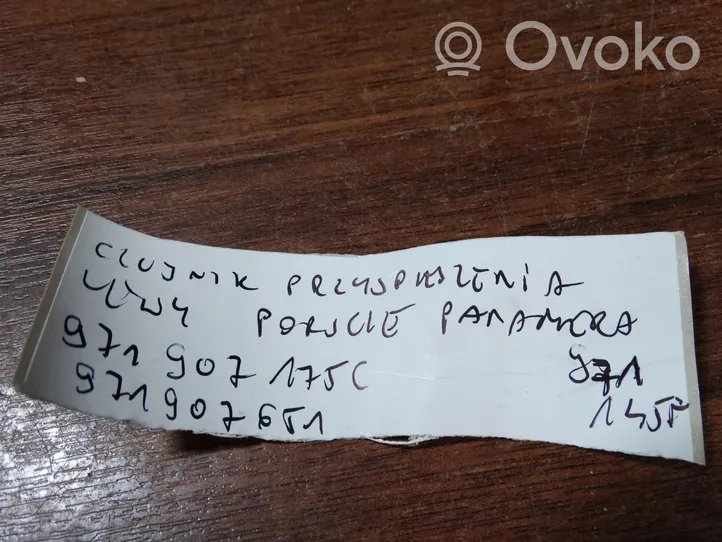 Ovoko
CZUJNIK PRZYSPIESZENIA
LEWY PORSCHE PANAMERA
971 907 175C 971
971907651 145F